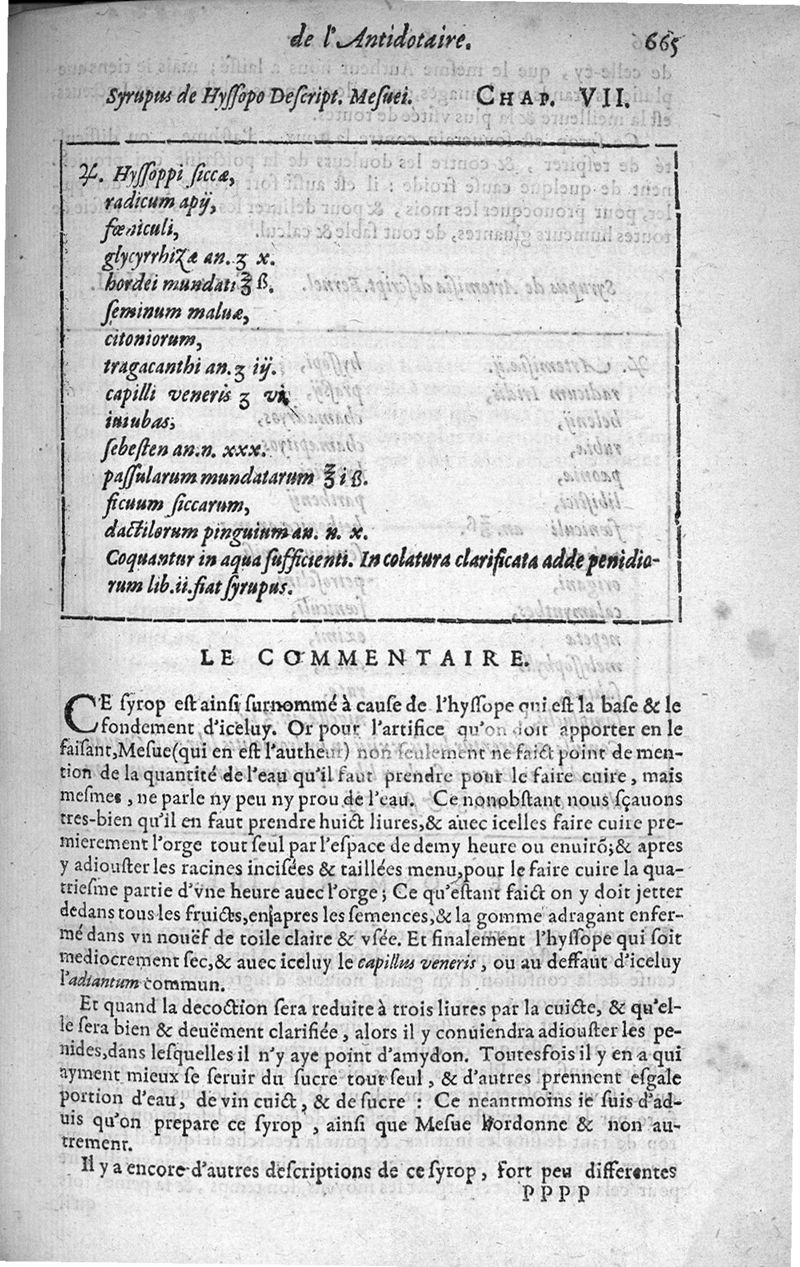 de l'Antidotaire. 665
Syrupus de Hyſſopo Deſcript. Meſuei. CHAP. VII.
♃. Hyſſoppi ſiccæ,
radicum apij,
fœniculi,
glycyrrhizæ an. ʒ x.
hordei mundati ℥ ß.
ſeminum maluæ,
citoniorum,
tragacanthi an. ʒ iij.
capilli veneris ʒ vi.
iuiubas,
ſebeſten an. n. xxx.
paſſularum mundatarum ℥ i ß.
ficuum ſiccarum,
dactilorum pinguium an. n. x.
Coquantur in aqua ſufficienti. In colatura clarificata adde penidio-
rum lib. ii. fiat ſyrupus.
LE COMMENTAIRE.
CE ſyrop eſt ainſi ſurnommé à cauſe de l'hyſſope qui eſt la baſe & le
fondement d'iceluy. Or pour l'artifice qu'on doit apporter en le
faiſant, Meſue (qui en eſt l'autheur) non ſeulement ne faict point de men-
tion de la quantité de l'eau qu'il faut prendre pour le faire cuire, mais
meſmes, ne parle ny peu ny prou de l'eau. Ce nonobſtant nous ſçauons
tres-bien qu'il en faut prendre huict liures, & auec icelles faire cuire pre-
mierement l'orge tout ſeul par l'eſpace de demy heure ou enuirō; & apres
y adiouſter les racines inciſées & taillées menu, pour le faire cuire la qua-
trieſme partie d'vne heure auec l'orge; Ce qu'eſtant faict on y doit jetter
dedans tous les fruicts, en apres les ſemences, & la gomme adragant enfer-
mé dans vn nouët de toile claire & vſée. Et finalement l'hyſſope qui ſoit
mediocrement ſec, & auec iceluy le capillus veneris, ou au deffaut d'iceluy
l'adiantum commun.
Et quand la decoction ſera reduite à trois liures par la cuicte, & qu'el-
le ſera bien & deuëment clarifiée, alors il y conuiendra adiouſter les pe-
nides, dans leſquelles il n'y aye point d'amydon. Toutesfois il y en a qui
ayment mieux ſe ſeruir du ſucre tout ſeul, & d'autres prennent eſgale
portion d'eau, de vin cuict, & de ſucre : Ce neantmoins ie ſuis d'ad-
uis qu'on prepare ce ſyrop, ainſi que Meſue l'ordonne & non au-
trement.
Il y a encore d'autres deſcriptions de ce ſyrop, fort peu differentes
PPPP